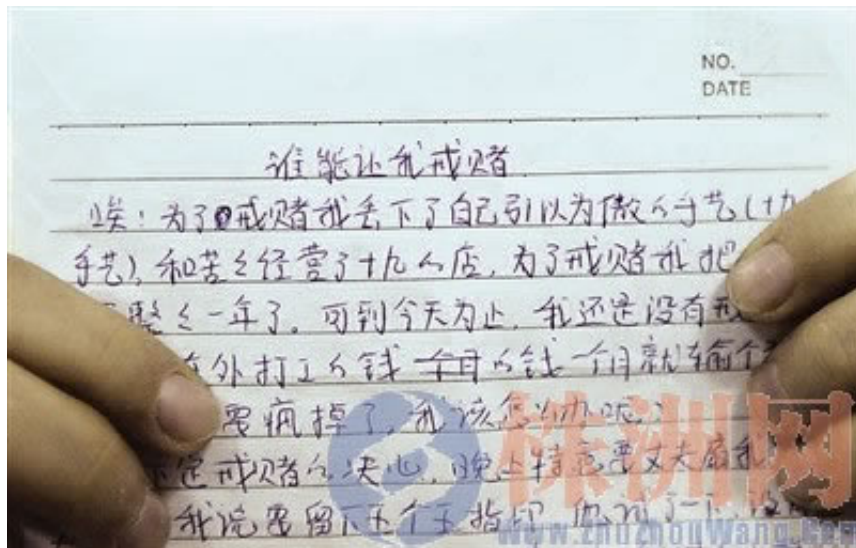 NO.
DATE
谁能让我戒赌
唉!为了戒赌我丢下了自己引以为傲的手艺(十九
手艺),和苦々经营了十九的店,为了戒赌我把
整々一年了。可到今天为止,我还是没有戒
外打工的钱 一个月的钱一个月就输个
要疯掉了,我该怎么办呢?
定戒赌的决心,晚上特意要丈夫扇我
我说要留下五个手指印 他
株洲网
www.zhuzhouwang.com